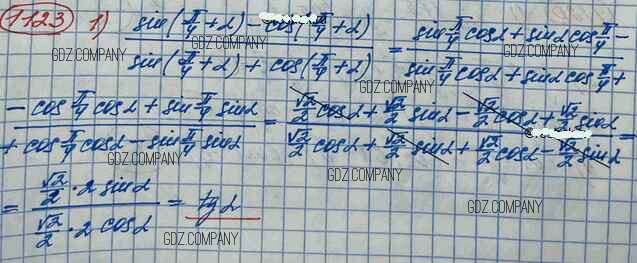 1123 1) (sin(π/4 + α) − cos(π/4 + α)) / (sin(π/4 + α) + cos(π/4 + α)) = (sin π/4 cos α + sin α cos π/4 − / sin π/4 cos α + sin α cos π/4 +
− cos π/4 cos α + sin π/4 sin α / + cos π/4 cos α − sin π/4 sin α) = (√2/2 cos α + √2/2 sin α − √2/2 cos α + √2/2 sin α) / (√2/2 cos α + √2/2 sin α + √2/2 cos α − √2/2 sin α) =
= (√2/2 · 2 sin α) / (√2/2 · 2 cos α) = tg α
GDZ.COMPANY
GDZ.COMPANY
GDZ.COMPANY
GDZ.COMPANY
GDZ.COMPANY
GDZ.COMPANY
GDZ.COMPANY
GDZ.COMPANY
GDZ.COMPANY